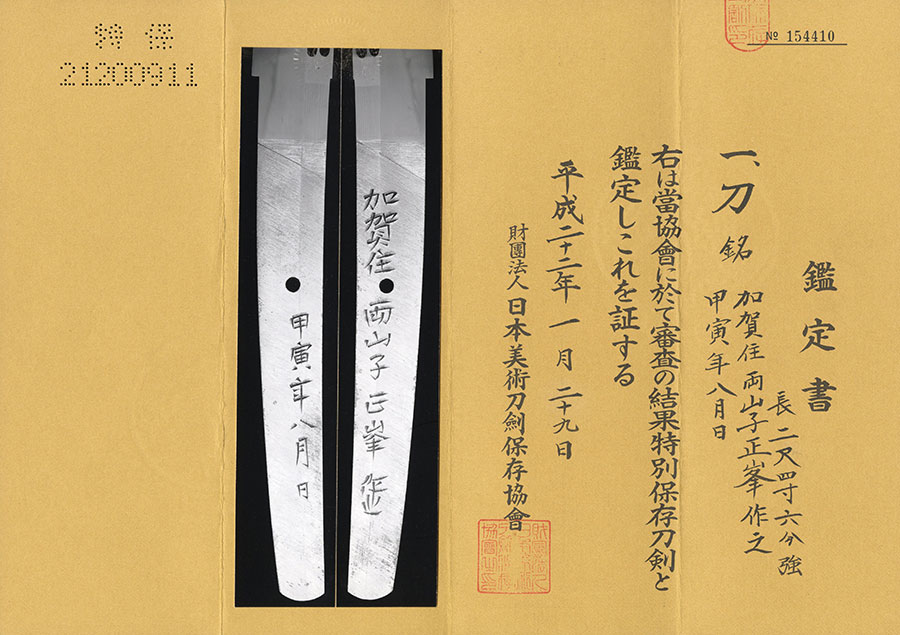 特保
21200911
№ 154410
鑑定書
長 二尺四寸六分強
一、刀 銘 加賀住両山子正峯作之
甲寅年八月日
右は當協會に於て審査の結果特別保存刀剣と
鑑定しこれを証する
平成二十二年一月二十九日
財團法人日本美術刀劍保存協會
加賀住両山子正峯作之
甲寅年八月日